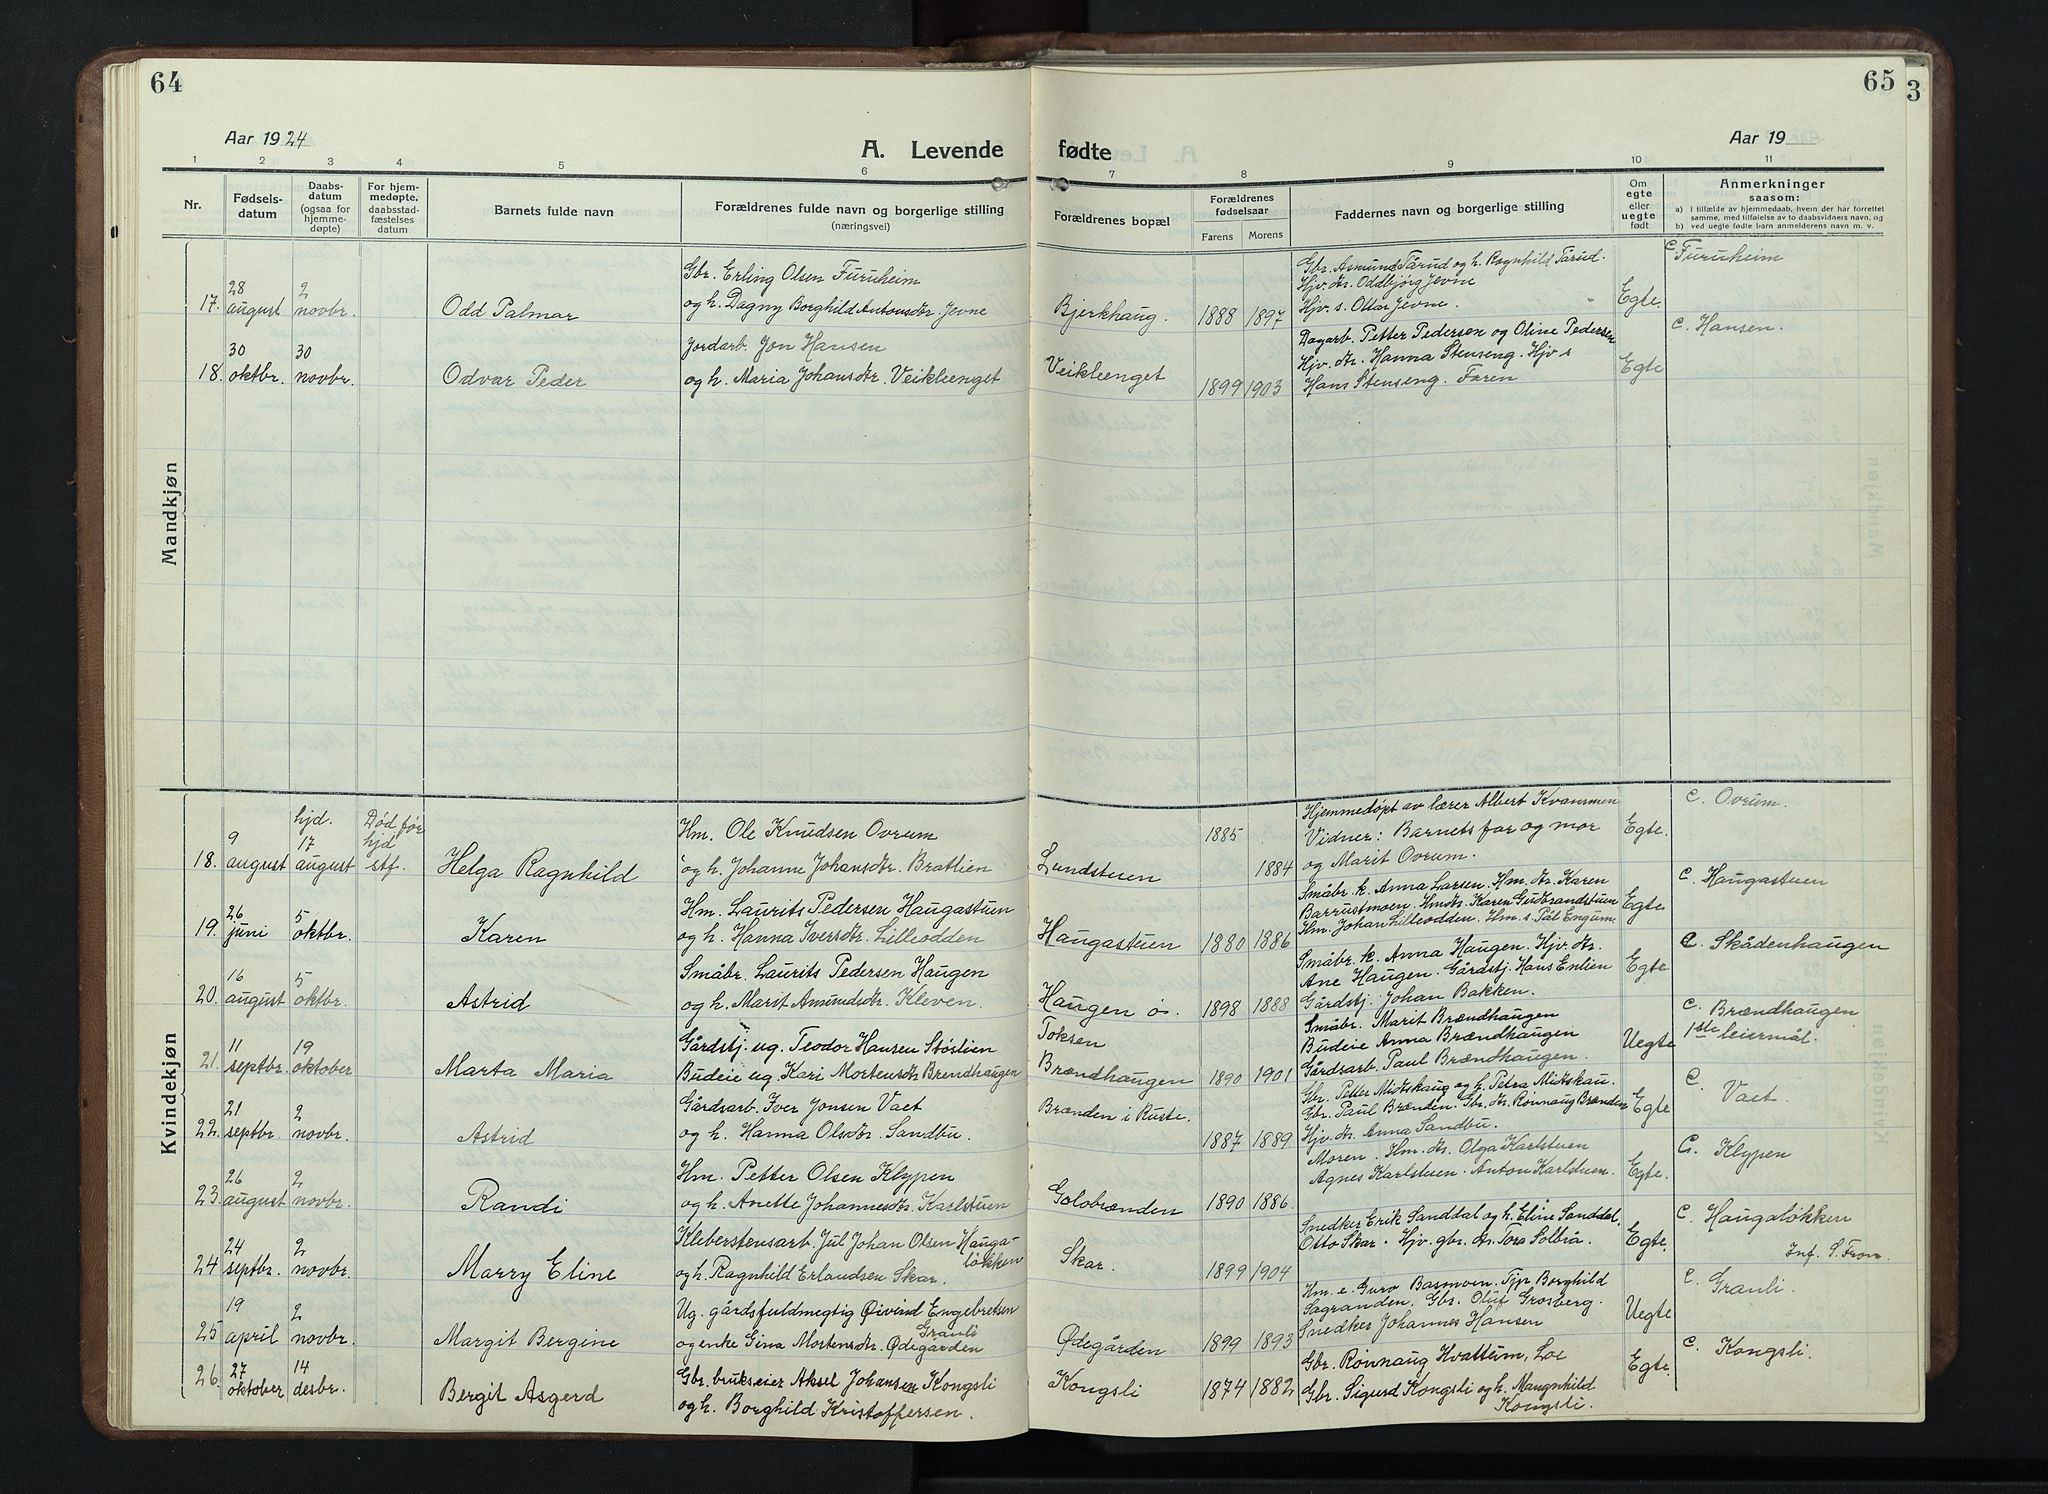 64
65
3
Aar 1924
A. Levende fødte
Aar 19
1 2 3 4 5 6 7 8 9 10 11
Nr.
Fødsels-
datum
Daabs-
datum
(ogsaa for
hjemme-
døpte)
For hjem-
medøpte,
daabsstad-
fæstelses
datum
Barnets fulde navn
Forældrenes fulde navn og borgerlige stilling
(næringsvei)
Forældrenes bopæl
Forældrenes
fødselsaar
Farens Morens
Faddernes navn og borgerlige stilling
Om
egte
eller
uegte
født
Anmerkninger
saasom:
a) I tilfælde av hjemmedaab, hvem der har forrettet
samme, med tilføielse av to daabsvidners navn, og
b) ved uegte fødte barn anmelderens navn m. v.
Mandkjøn
17. 28 august 2 novbr. Odd Palmar
Gbr. Erling Olsen Furuheim
og h. Dagny Borghild Antonsdtr. Jevne
Bjerkhaug. 1888 1897
Gbr. Asmund Tårud og h. Ragnhild Tårud.
Hjv. dr. Oddbjørg Jevne
Hjv. s. Ottar Jevne.
Egte.
C. Furuheim
18. 30 oktbr. 30 novbr. Odvar Peder
Jordarb. Jon Hansen
og h. Maria Johansdtr. Veiklænget
Veiklænget 1899 1903
Dagarb. Petter Pedersen og Oline Pedersen
Hjv. dr. Hanna Stenseng. Hjv s
Hans Stenseng. Faren
Egte
C. Hansen.
Kvindekjøn
18. 9 august hjd. 17 august Død før hjd stf. Helga Ragnhild
Hm. Ole Knudsen Ovrum
og h. Johanne Johansdtr. Bratlien
Lundstuen 1885 1884
Hjemmedøpt av lærer Albert Kvansmen
Vidner: Barnets far og mor
og Marit Ovrum.
Egte.
C. Ovrum.
19. 26 juni 5 oktbr. Karen
Hm. Laurits Pedersen Haugastuen
og h. Hanna Iversdtr. Lilleodden
Haugastuen 1880 1886
Småbr. k. Anna Larsen. Hm. dr. Karen
Barrustmoen. Hm dr. Karen Gudbrandstuen
Hm. Johan Lilleodden. Hm. s. Pål Engum.
Egte
C. Haugastuen
20. 16 august 5 oktbr. Astrid
Småbr. Laurits Pedersen Haugen
og h. Marit Amundsdtr. Kleven.
Haugen ø. 1898 1888
Småbr. k. Anna Haugen. Hjv. dr.
Ane Haugen. Gårdstj. Hans Enlien
Gårdstj. Johan Bakken.
Egte
C. Skådenhaugen
21. 11 septbr. 19 oktober Marta Maria
Gårdstj. ug. Teodor Hansen Støslien
Budeie ug. Kari Mortensdtr Brendhaugen
Toksen
Brændhaugen 1890 1901
Småbr. Marit Brændhaugen
Budeie Anna Brændhaugen
Gårdsarb. Paul Brændhaugen.
Uegte
C. Brændhaugen
1ste leiermål.
22. 21 septbr. 2 novbr. Astrid
Gårdsarb. Iver Jonsen Vaet
og h. Hanna Olsdtr. Sandbu.
Brænden i Ruste. 1887 1889
Gbr. Petter Midtskaug og h. Petra Midtskau.
Gbr. Paul Brænden. Gbr. dr. Rønnaug Brænden
Hjv. dr. Anna Sandbu.
Egte
C. Vaet.
23. 26 august 2 novbr. Randi
Hm. Petter Olsen Klypen
og h. Anette Johannesdtr. Karlstuen
Golobrænden 1890 1886.
Moren. Hm. dr. Olga Karlstuen
Agnes Karlstuen. Anton Karlstuen.
Egte.
C. Klypen
24 24 septbr. 2 novbr. Marry Eline
Kleberstensarb. Jul Johan Olsen Hauga-
løkken
og h. Ragnhild Erlandsen Skar.
Skar. 1899 1904
Snedker Erik Sanddal og h. Eline Sanddal,
Otto Skar. Hjv. gbr. dr. Tora Solbrå.
Egte.
C. Haugaløkken
Inf. S. Fron.
25 19 april 2 novbr. Margit Bergine
Ug. gårdsfuldmegtig Øivind Engebretsen
Granli
og enke Gina Mortensdtr. Ødegården
Ødegården 1899 1893
Hm. e. Guro Basmoen. Tjp Borghild
Sagranden. Gbr. Oluf Grosberg.
Snedker Johannes Hansen
Uegte
C. Granli.
26. 27 oktober 14 desbr. Bergit Asgerd
Gbr. brukseier Aksel Johansen Kongsli
og h. Borghild Kristoffersen.
Kongsli 1874 1882
Gbr. Rønnaug Hvattum, Loe
Gbr. Sigurd Kongsli og h. Mangnhild
Kongsli.
Egte.
C. Kongsli.